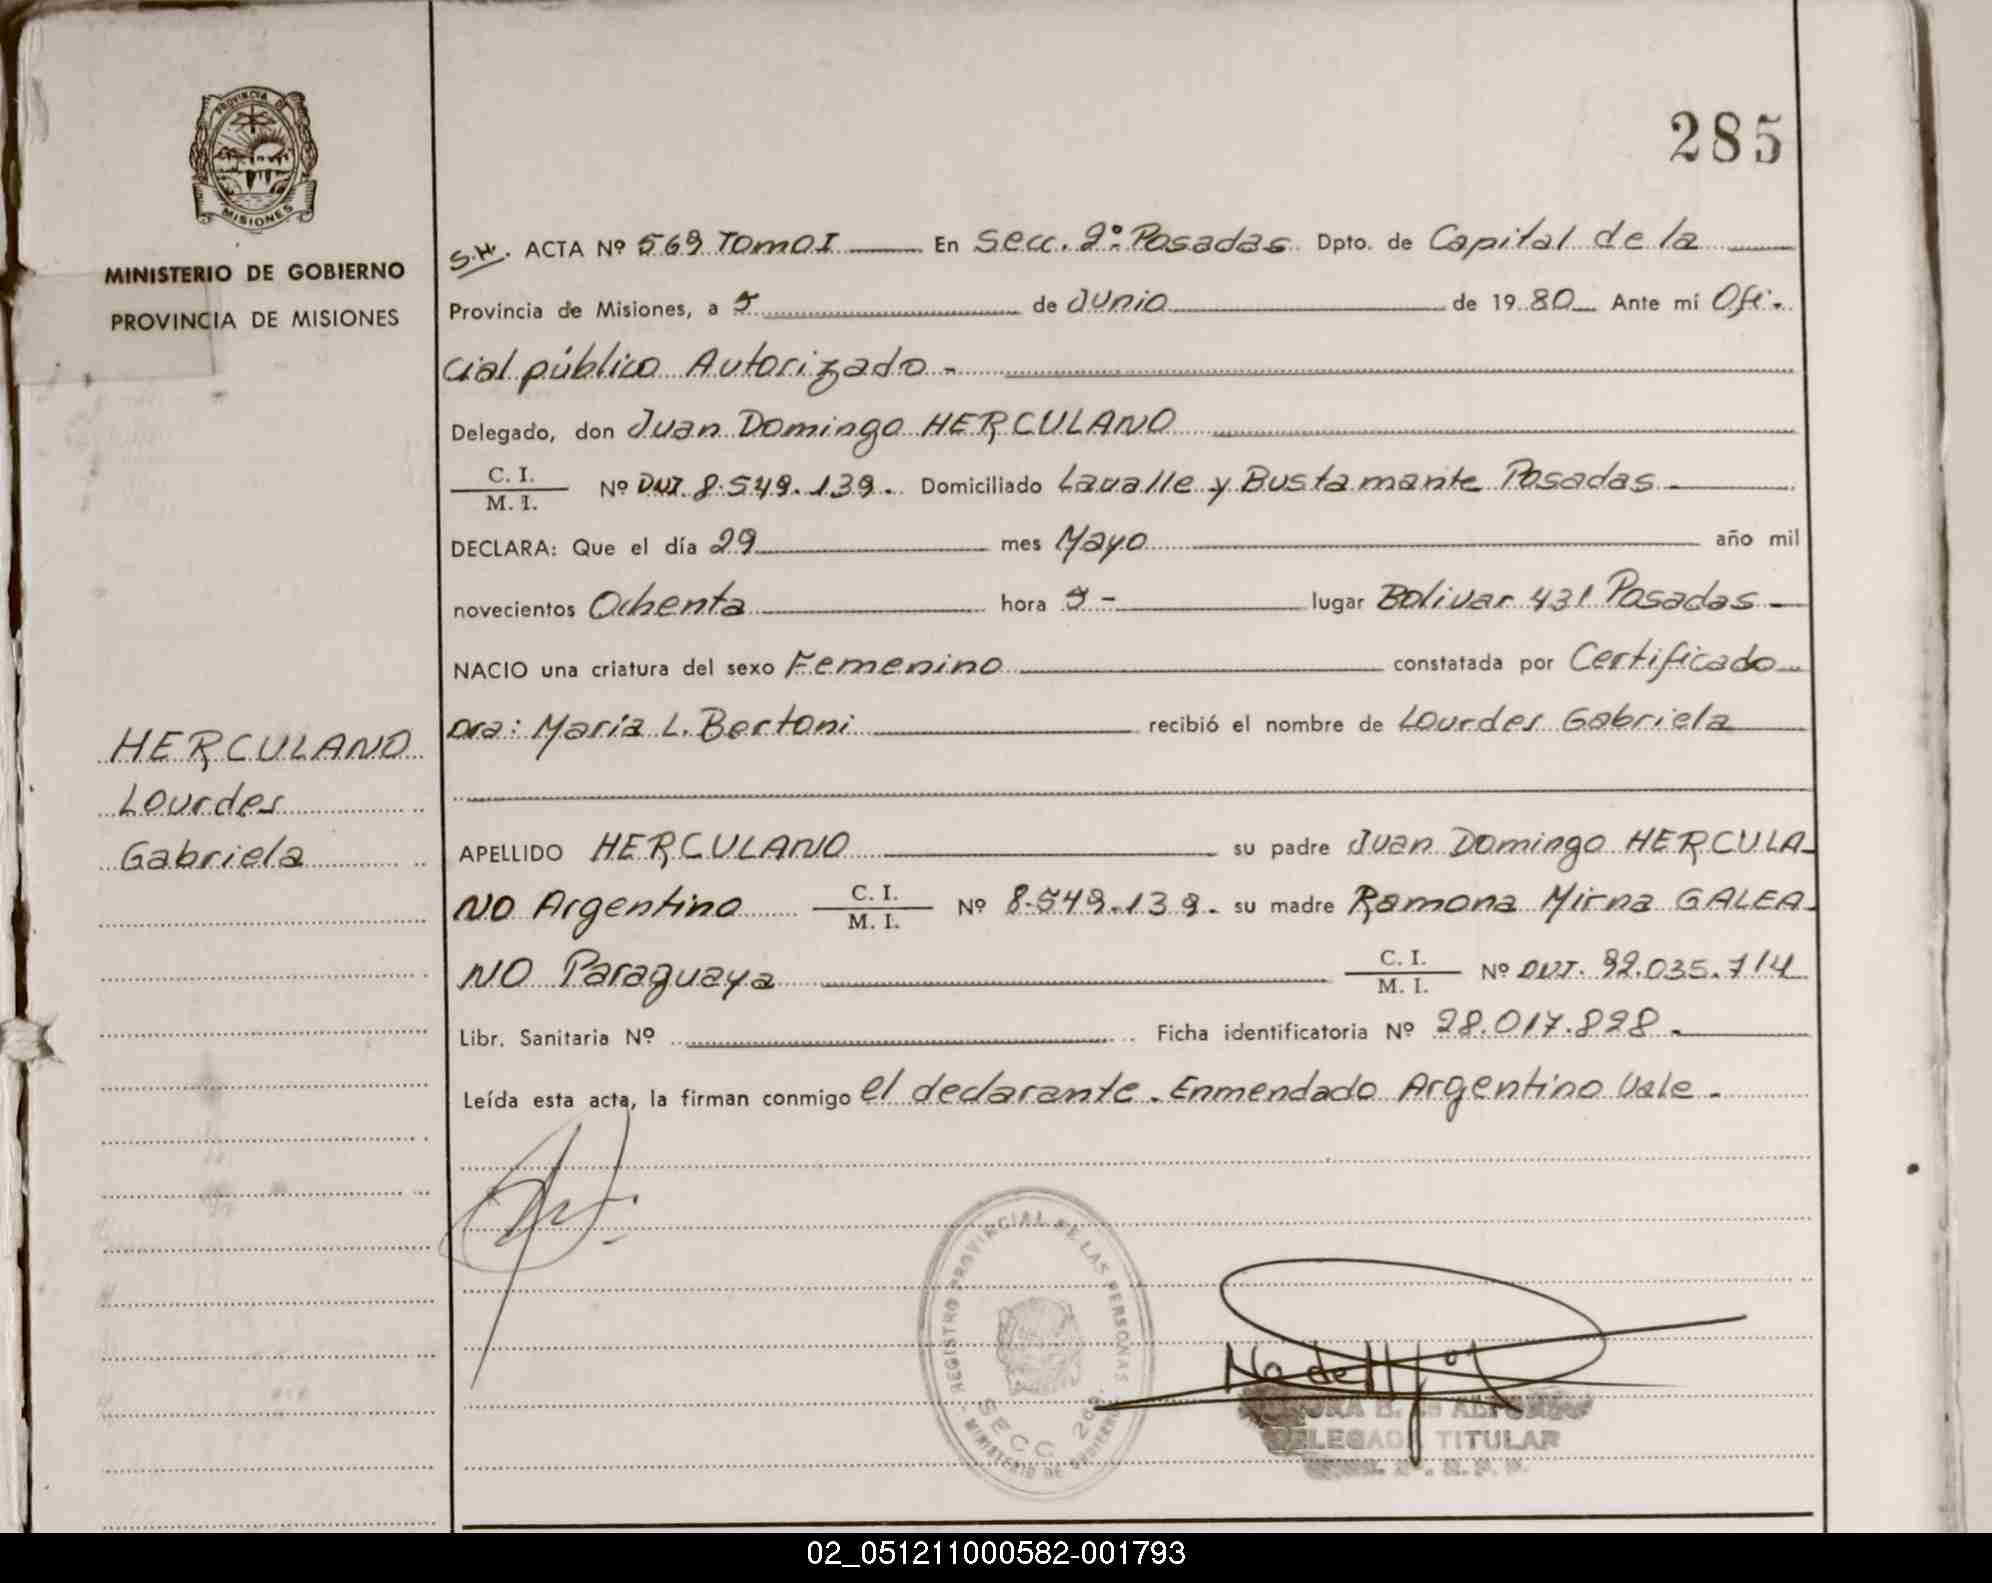 PROVINCIA DE
MISIONES
MINISTERIO DE GOBIERNO
PROVINCIA DE MISIONES
HERCULANO
Lourdes
Gabriela
285
S.H. ACTA Nº 569 Tomo I En Secc. 2º Posadas Dpto. de Capital de la
Provincia de Misiones, a 5 de Junio de 1980 Ante mí Ofi-
cial público Autorizado -
Delegado, don Juan Domingo HERCULANO
C. I.
M. I.
Nº DNI. 8.549.139. Domiciliado Lavalle y Bustamante Posadas
DECLARA: Que el día 29 mes Mayo año mil
novecientos Ochenta hora 5 - lugar Bolivar 431 Posadas
NACIO una criatura del sexo Femenino constatada por Certificado
Dra: María L. Bertoni recibió el nombre de Lourdes Gabriela
APELLIDO HERCULANO su padre Juan Domingo HERCULA-
NO Argentino C. I.
M. I.
Nº 8.549.139. su madre Ramona Mirna GALEA-
NO Paraguaya C. I.
M. I.
Nº DNI. 92.035.714
Libr. Sanitaria Nº Ficha identificatoria Nº 28.017.828.
Leída esta acta, la firman conmigo el declarante. Enmendado Argentino Vale.
REGISTRO PROVINCIAL DE LAS PERSONAS
SECC 2da.
MINISTERIO DE GOBIERNO
DELEGADA TITULAR
02_051211000582-001793